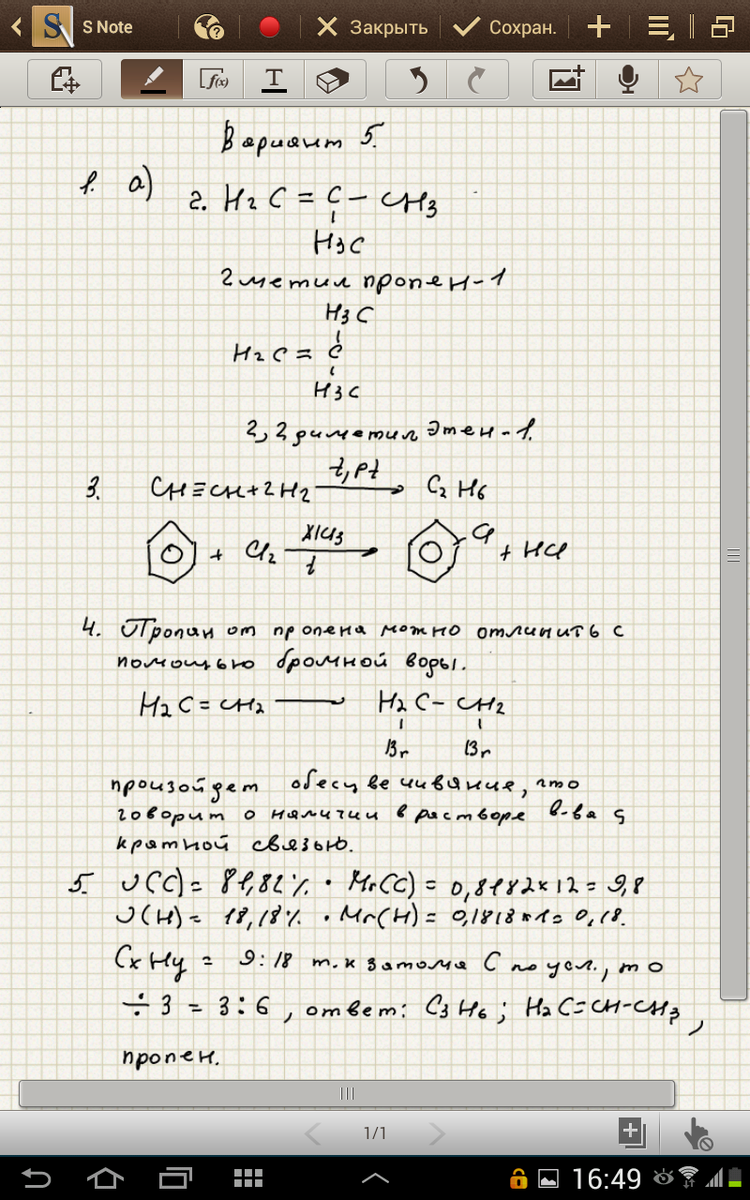 S Note
Закрыть
Сохран.
f(x)
T
Вариант 5.
1. а) 2. H2C = C – CH3
H3C
2 метил пропен-1
H3C
H2C = C
H3C
2,2 диметил этен-1.
3. CH≡CH+2H2 t,pt C2H6
+ Cl2 AlCl3 t Cl + HCl
4. Пропан от пропена можно отличить с
помощью бромной воды.
H2C = CH2 H2C – CH2
Br Br
произойдет обесцвечивание, что
говорит о наличии в растворе в-ва с
кратной связью.
5. υ(C) = 81,82% · Mr(C) = 0,8182×12 = 9,8
υ(H) = 18,18% · Mr(H) = 0,1818×1 = 0,18.
CxHy = 9:18 т.к 3 атома C по усл., то
÷ 3 = 3:6, ответ: C3H6; H2C=CH-CH3,
пропен.
1/1
16:49